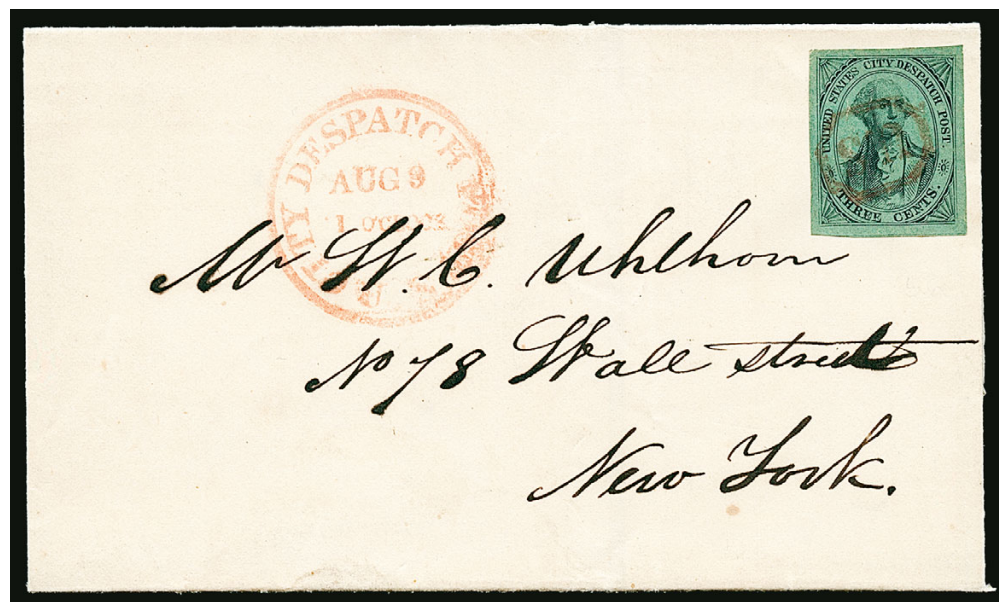 UNITED STATES CITY DESPATCH POST.
THREE CENTS.
CITY DESPATCH P
AUG 9
1 O'CLOCK
Mr W. C. Uhlhorn
No 78 Wall street
New York.